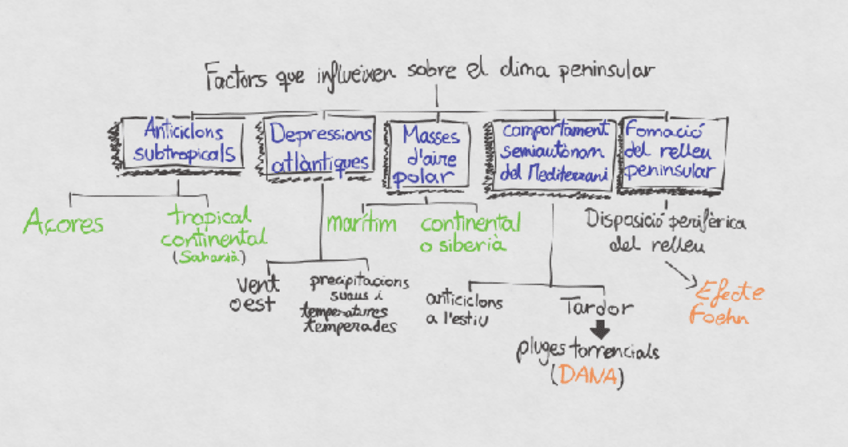 Factors que influeixen sobre el clima peninsular
Anticiclons
subtropicals
Depressions
atlàntiques
Masses
d'aire
polar
comportament
semiautònom
del Mediterrani
Fomació
del relleu
peninsular
Açores
tropical
continental
(Saharià)
marítim
continental
o siberià
Disposició perifèrica
del relleu
vent
oest
precipitacions
suaus i
temperatures
temperades
anticiclons
a l'estiu
Tardor
Efecte
Foehn
pluges torrencials
(DANA)